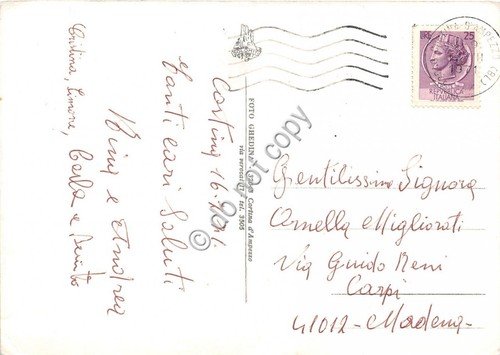 Cortina 16.7.71.
Tanti cari saluti
Nina e Andrea
Cristina, Simone, Carla e Benito
FOTO GHEDINA - Cortina d'Ampezzo
tel. 3505
do not copy
25
ITALIANA
Gentilissima Signora
Ornella Migliorati
Via Guido Reni
Carpi
41012 - Modena -